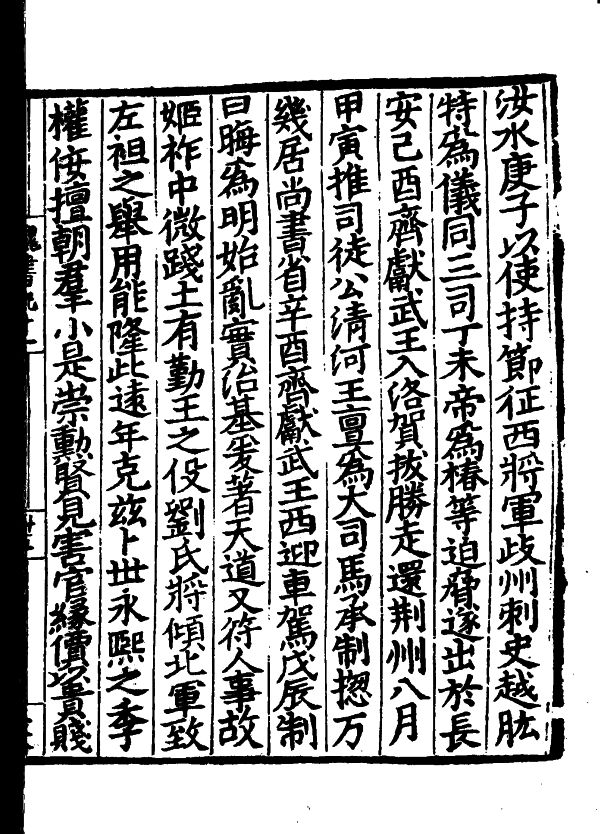 汝水庚子以使持節征西將軍歧州刺史越肱
特爲儀同三司丁未帝爲椿等迫脅遂出於長
安己酉齊獻武王入洛賀拔勝走還荆州八月
甲寅推司徒公清河王亶爲大司馬承制揔万
幾居尚書省辛酉齊獻武王西迎車駕戊辰制
曰晦爲明始亂實治基爰著天道又符人事故
姬祚中微踐土有勤王之役劉氏將傾北軍致
左袒之舉用能隆此遠年克玆卜世永熙之季
權佞擅朝羣小是崇勳賢見害官緣價以貴賤